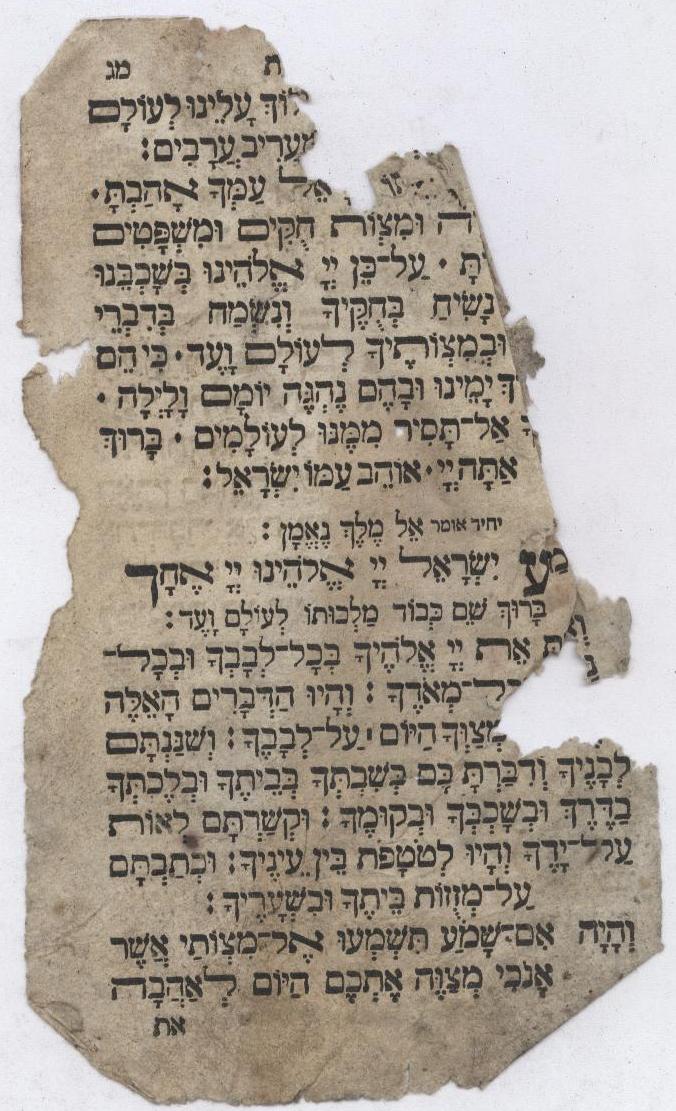 ת מג
עָלֵינוּ לְעוֹלָם
מַעֲרִיב עֲרָבִים׃
עַמְּךָ אָהַבְתָּ׃
וּמִצְוֹת חֻקִּים וּמִשְׁפָּטִים
עַל־כֵּן יְיָ אֱלֹהֵינוּ בְּשָׁכְבֵּנוּ
נָשִׂיחַ בְּחֻקֶּיךָ וְנִשְׂמַח בְּדִבְרֵי
וּבְמִצְוֹתֶיךָ לְעוֹלָם וָעֶד׃ כִּי הֵם
יָמֵינוּ וּבָהֶם נֶהְגֶּה יוֹמָם וָלָיְלָה׃
אַל־תָּסִיר מִמֶּנּוּ לְעוֹלָמִים׃ בָּרוּךְ
אַתָּה יְיָ׃ אוֹהֵב עַמּוֹ יִשְׂרָאֵל׃
יחיד אומר אֵל מֶלֶךְ נֶאֱמָן׃
יִשְׂרָאֵל יְיָ אֱלֹהֵינוּ יְיָ אֶחָד
בָּרוּךְ שֵׁם כְּבוֹד מַלְכוּתוֹ לְעוֹלָם וָעֶד׃
אֵת יְיָ אֱלֹהֶיךָ בְּכָל־לְבָבְךָ וּבְכָל־
מְאֹדֶךָ׃ וְהָיוּ הַדְּבָרִים הָאֵלֶּה
מְצַוְּךָ הַיּוֹם עַל־לְבָבֶךָ׃ וְשִׁנַּנְתָּם
לְבָנֶיךָ וְדִבַּרְתָּ בָּם בְּשִׁבְתְּךָ בְּבֵיתֶךָ וּבְלֶכְתְּךָ
בַדֶּרֶךְ וּבְשָׁכְבְּךָ וּבְקוּמֶךָ׃ וּקְשַׁרְתָּם לְאוֹת
עַל־יָדֶךָ וְהָיוּ לְטֹטָפֹת בֵּין עֵינֶיךָ׃ וּכְתַבְתָּם
עַל־מְזוּזוֹת בֵּיתֶךָ וּבִשְׁעָרֶיךָ׃
וְהָיָה אִם־שָׁמֹעַ תִּשְׁמְעוּ אֶל־מִצְוֹתַי אֲשֶׁר
אָנֹכִי מְצַוֶּה אֶתְכֶם הַיּוֹם לְאַהֲבָה
את